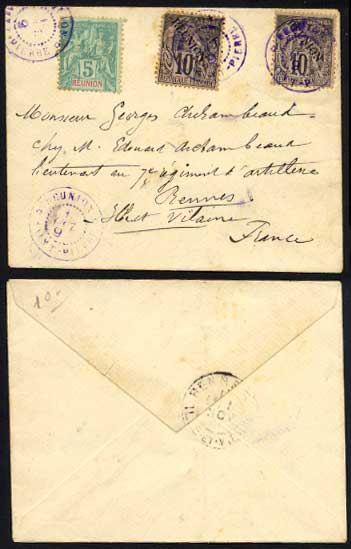 5
REUNION
10
10
REUNION
Monsieur Georges Archambeaud
chez M. Edouard Archambeaud
lieutenant au 7e régiment d'artillerie
Rennes
Ille et Vilaine
France
REUNION
10
RENNES